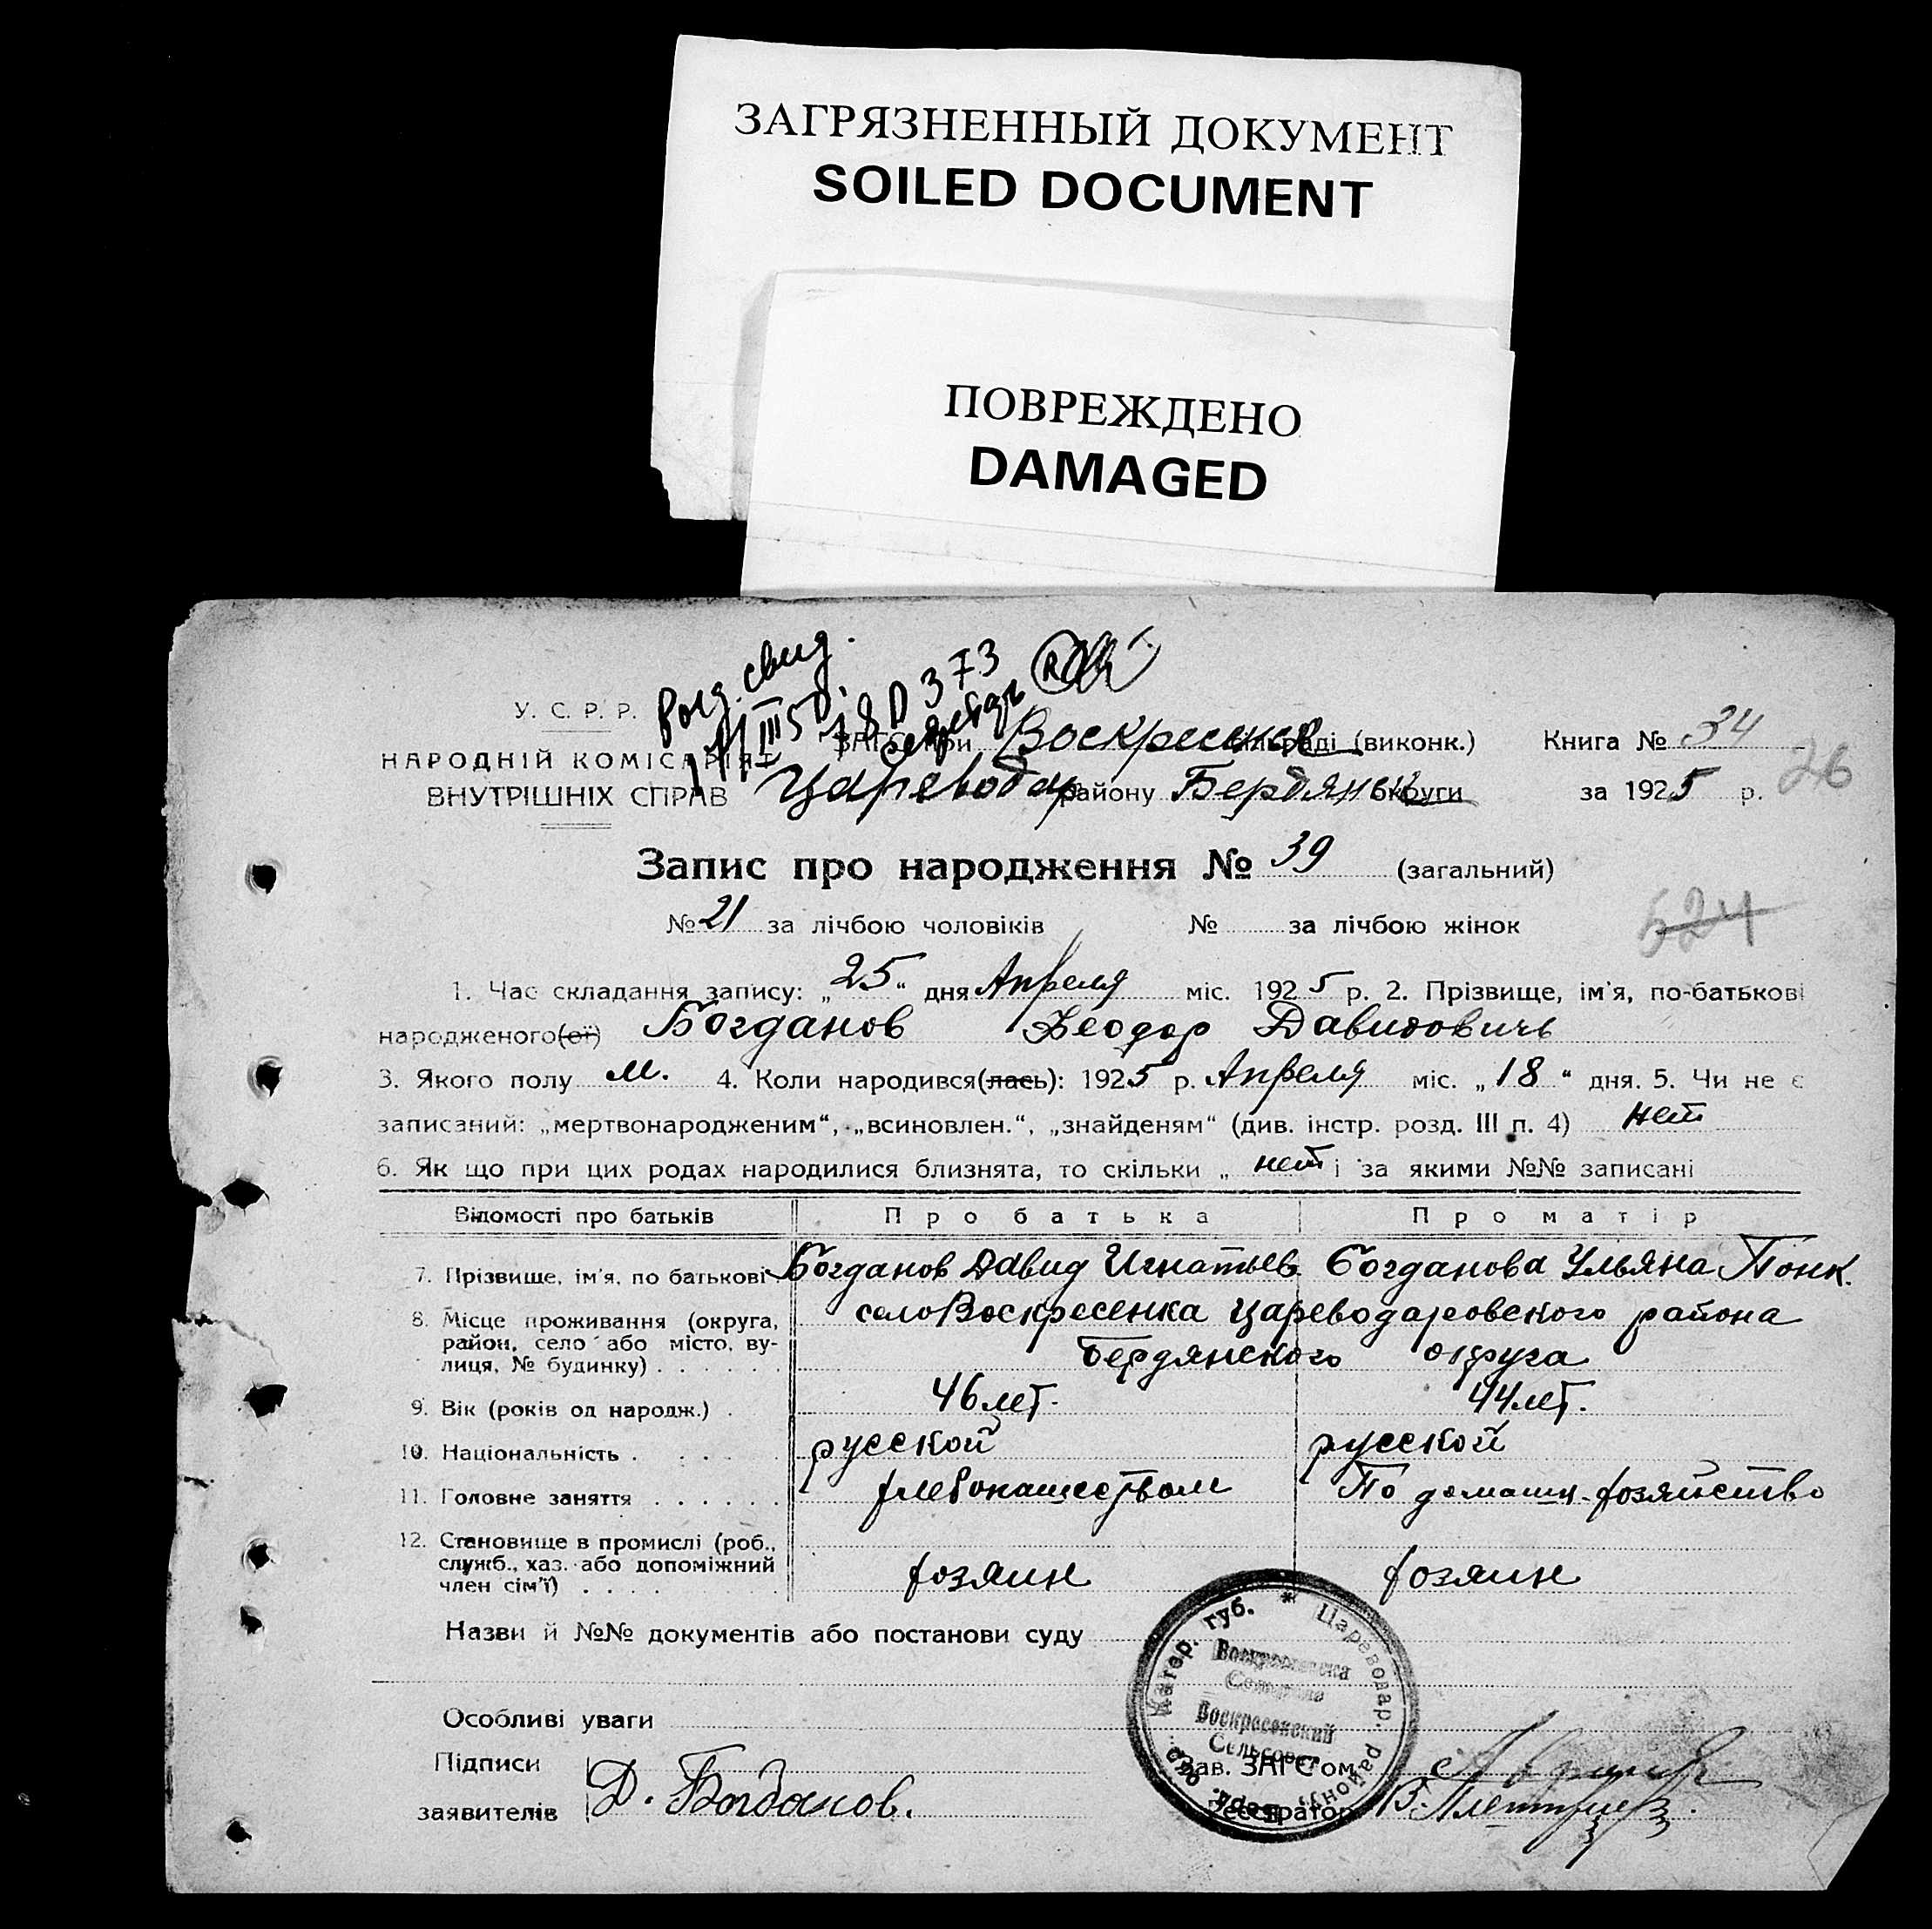 ЗАГРЯЗНЕННЫЙ ДОКУМЕНТ
SOILED DOCUMENT
ПОВРЕЖДЕНО
DAMAGED
У. С. Р. Р.
НАРОДНІЙ КОМІСАРІЯТ
ВНУТРІШНІХ СПРАВ
розд. свид.
373
ЗАГС при Воскресенск раді (виконк.) Книга № 34
Цареводар району Бердянск округи за 1925 р. 26
Запис про народження № 39 (загальний)
№ 21 за лічбою чоловіків № за лічбою жінок 524
1. Час складання запису: „25“ дня Апреля міс. 1925 р. 2. Прізвище, ім'я, по-батькові
народженого(ої) Богданов Феодор Давидовичь
3. Якого полу м. 4. Коли народився(лась): 1925 р. Апреля міс. „18“ дня. 5. Чи не є
записаний: „мертвонародженим“, „всиновлен.“, „знайденям“ (див. інстр. розд. III п. 4) нет
6. Як що при цих родах народилися близнята, то скільки „ нет і за якими №№ записані
Відомості про батьків Про батька Про матір
7. Прізвище, ім'я, по батькові Богданов Давид Игнатьев Богданова Ульяна Понк.
8. Місце проживання (округа, район, село або місто, вулиця, № будинку) село Воскресенка Цареводаровского района
Бердянского округа
9. Вік (років од народж.) 46 лет. 44 лет.
10. Національність русской русской
11. Головне заняття хлебопашеством По домашн. хозяйство
12. Становище в промислі (роб., служб., хаз. або допоміжний член сім'ї) хозяин хозяин
Назви й №№ документів або постанови суду
Катер. губ. * Цареводар. району, Берд. окр.
Воскресенский
Сельсовет
Особливі уваги
Підписи
заявителів Д. Богданов.
Зав. ЗАГС'ом
Реєстратор В.